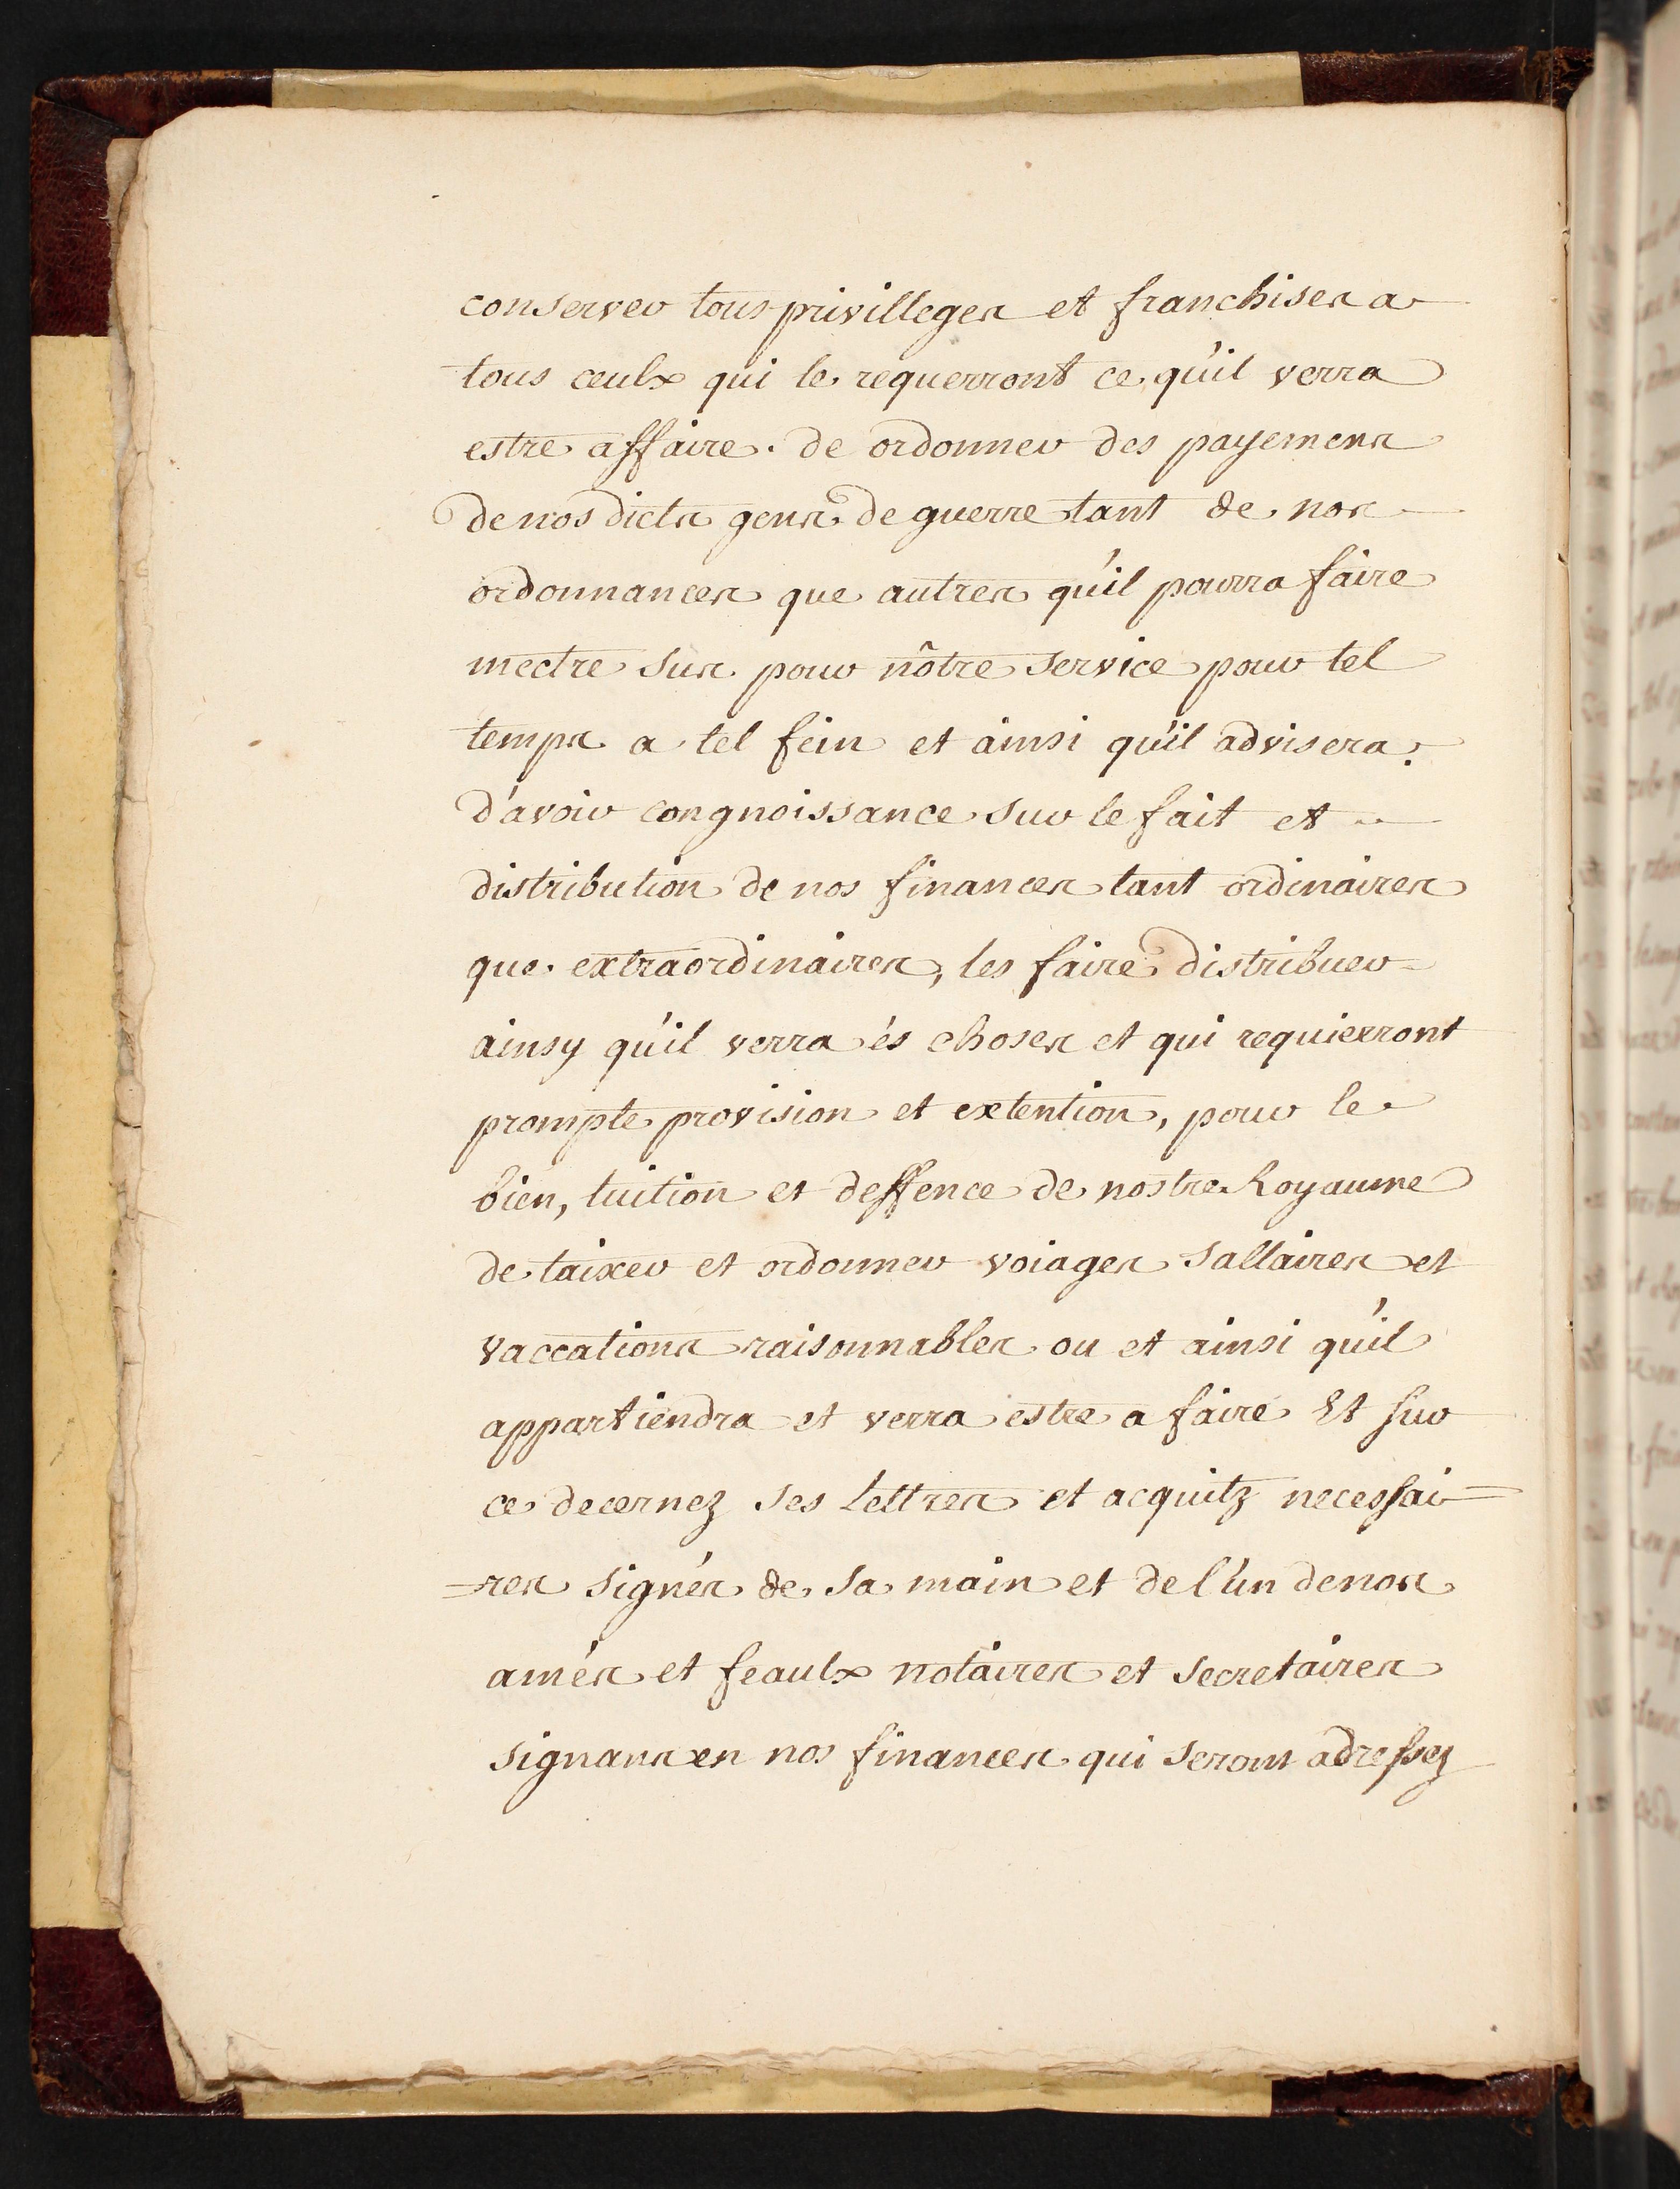 conserver tous privilleges et franchises a
tous ceulx qui le requerront ce qu'il verra
estre affaire. de ordonner des payemens
de nos dicts gens de guerre tant de nos
ordonnances que autres qu'il pourra faire
mectre sus pour nôtre service pour tel
temps a tel fein et ainsi qu'il advisera;
d'avoir congnoissance sur le fait et
distribution de nos finances tant ordinaires
que extraordinaires, les faire distribuer
ainsy qu'il verra és choses et qui requierront
prompte provision et extention, pour le
bien, tuition et deffence de nostre Royaume
de taixer et ordonner voiages sallaires et
vaccations raisonnables ou et ainsi qu'il
appartiendra et verra estre a faire Et sur
ce decernez ses Lettres et acquitz necessai=
=res signés de sa main et de l'un de nos
amés et feaulx notaires et secretaires
signans en nos finances qui seront adressez